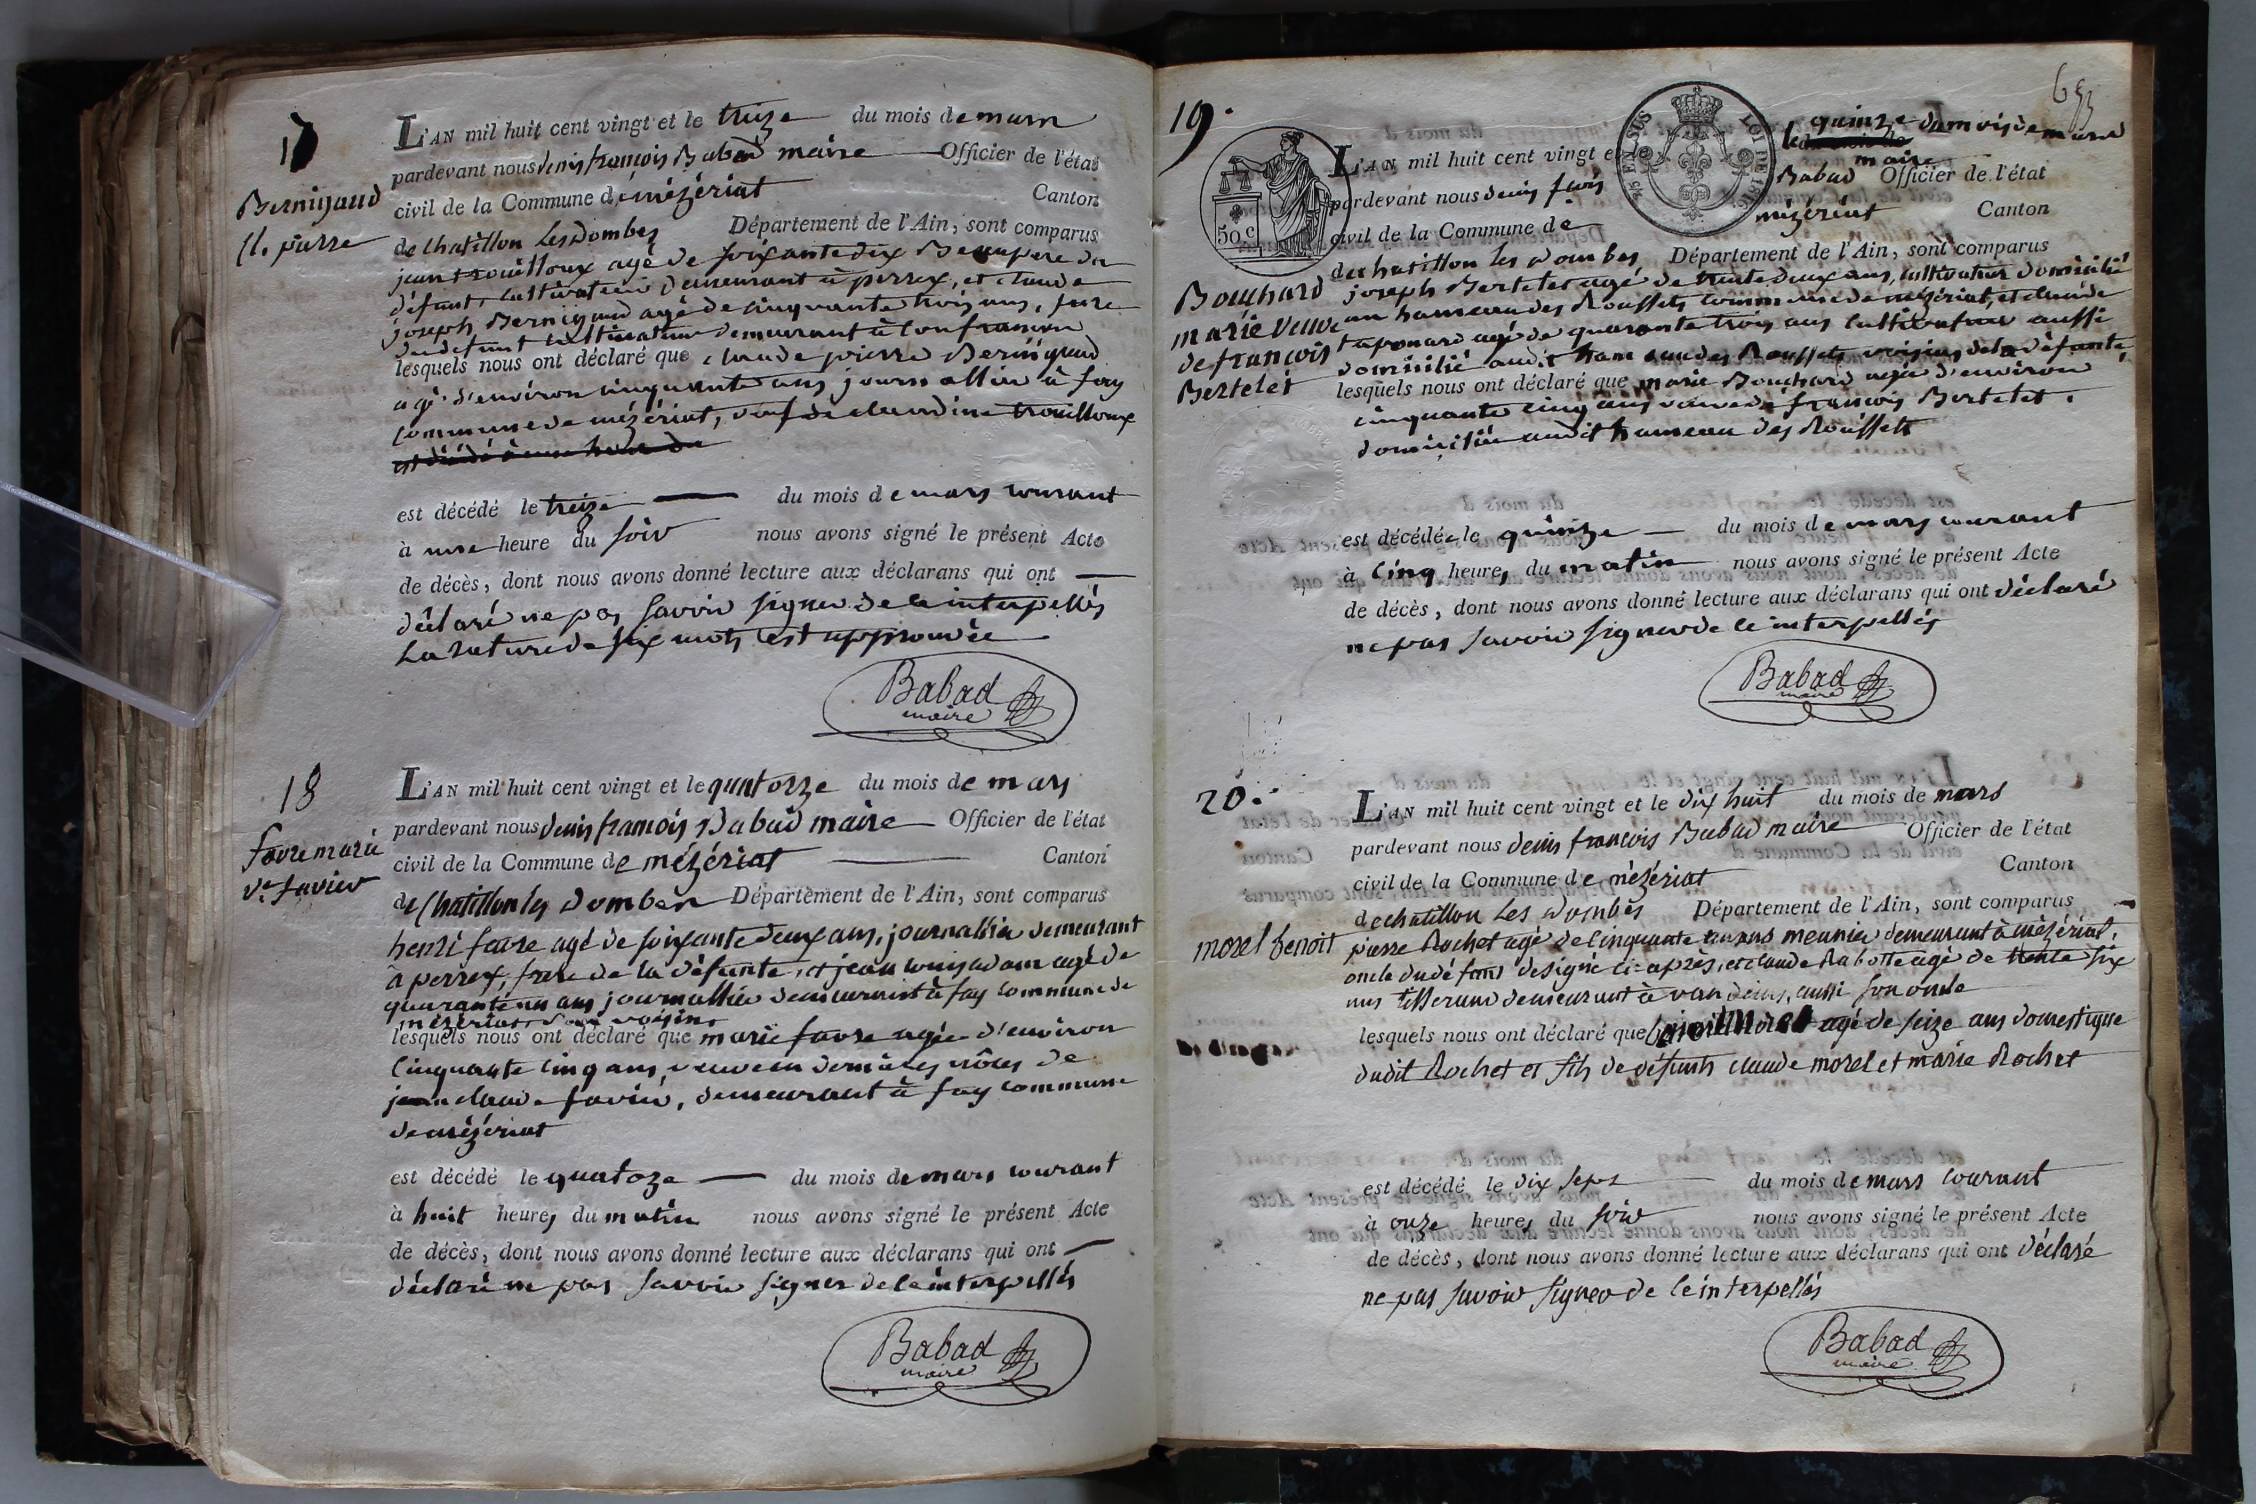 17
Bernigaud
cl. pierre
L'AN mil huit cent vingt et le treize du mois de mars
pardevant nous denis françois Babad maire Officier de l'état
civil de la Commune de mézériat Canton
de Chatillon Les Dombes Département de l'Ain, sont comparus
jean trouilloux agé de soixante dix Beaupere du
défunt, cultivateur demeurant à perrex, et claude
joseph Bernigaud agé de cinquante trois ans, frere
du defunt cultivateur demeurant à Confrançon
lesquels nous ont déclaré que claude pierre Bernigaud
agé d'environ cinquante ans journallier à fay
commune de mézériat, veuf de claudine trouilloux
est décédé à une heure du
est décédé le treize du mois de mars courant
à une heure du soir nous avons signé le présent Acte
de décès, dont nous avons donné lecture aux déclarans qui ont
déclaré ne pas savoir signer de ce interpellés
La rature de six mots est approuvée
Babad
maire
18
favre marie
ve. favier
L'AN mil huit cent vingt et le quatorze du mois de mars
pardevant nous denis françois Babad maire Officier de l'état
civil de la Commune de mézériat Canton
de Chatillon les Dombes Département de l'Ain, sont comparus
henri favre agé de soixante deux ans, journallier demeurant
à perrex, frere de la défunte, et jean louis adam agé de
quarante un ans journallier demeurant à fay commune de
mézériat, son voisin
lesquels nous ont déclaré que marie favre agée d'environ
cinquante cinq ans, veuve en dernieres nôces de
jean claude favier, demeurant à fay commune
de mézériat
est décédé le quatoze du mois de mars courant
à huit heures du matin nous avons signé le présent Acte
de décès, dont nous avons donné lecture aux déclarans qui ont
déclaré ne pas savoir signer de ce interpellés
Babad
maire
19.
Bouchard
marie veuve
de françois
Bertelet
50 c
25 EN SUS LOI DE 1816
L'AN mil huit cent vingt et le quinze du mois de mars
pardevant nous denis fçois Babad maire Officier de l'état
civil de la Commune de mézériat Canton
de chatillon les Dombes Département de l'Ain, sont comparus
joseph Bertelet agé de trente deux ans, cultivateur domicilié
au hameau des Roussets commune de mézériat, et claude
taponard agé de quarante trois ans cultivateur aussi
domicilié audit hameau des Roussets voisins de la défunte,
lesquels nous ont déclaré que marie Bouchard agée d'environ
cinquante cinq ans veuve de françois Bertelet,
domiciliée audit hameau des Roussets
est décédée le quinze du mois de mars courant
à cinq heures du matin nous avons signé le présent Acte
de décès, dont nous avons donné lecture aux déclarans qui ont déclaré
ne pas savoir signer de ce interpellés
Babad
maire
20.
morel benoit
L'AN mil huit cent vingt et le dix huit du mois de mars
pardevant nous denis françois Babad maire Officier de l'état
civil de la Commune de mézériat Canton
de chatillon Les Dombes Département de l'Ain, sont comparus
pierre Rochet agé de cinquante un ans meunier demeurant à mézériat,
oncle du défunt designé ci-après, et claude Rabotte agé de trente six
ans tisserand demeurant à vandeins, aussi son oncle
lesquels nous ont déclaré que benoit morel agé de seize ans domestique
dudit Rochet et fils de défunts claude morel et marie Rochet
est décédé le dix sept du mois de mars courant
à onze heures du soir nous avons signé le présent Acte
de décès, dont nous avons donné lecture aux déclarans qui ont déclaré
ne pas savoir signer de ce interpellés
Babad
maire